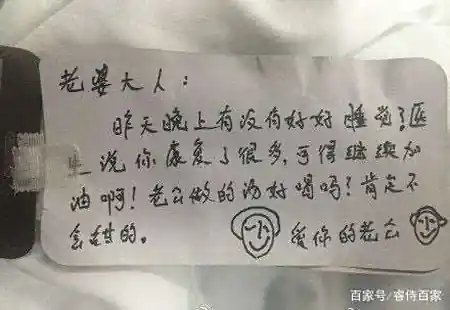 老婆大人：
昨天晚上有没有好好睡觉？医
生说你康复了很多，可得继续加
油啊！老公做的汤好喝吗？肯定不
会错的。
爱你的老公
百家号/睿侍百家